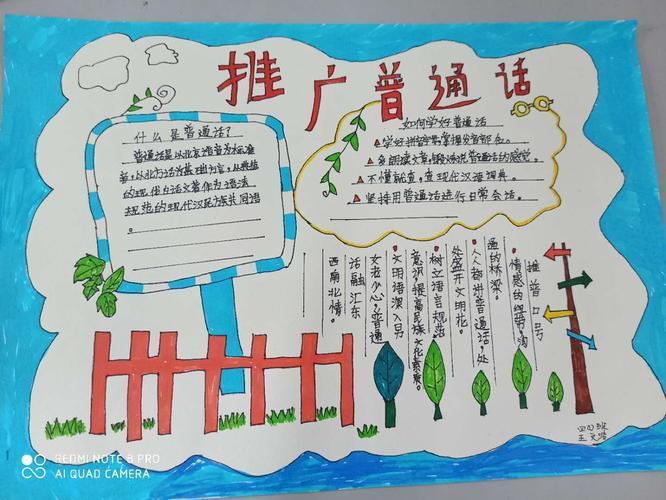 推广普通话
什么是普通话?
普通话是以北京语音为标准
音,以北方话为基础方言,以典范
的现代白话文著作为语法
规范的现代汉民族共同语
。
如何学好普通话
学好拼音,掌握发音部位。
多朗读文章,锻炼说普通话的感觉。
不懂就查,查现代汉语词典。
坚持用普通话进行日常会话。
推普口号
情感的纽带,沟
通的桥梁。
人人都讲普通话,处
处盛开文明花。
树立语言规范
意识,提高民族文化素质。
文明语深入男
女老少心,普通
话融汇东
西南北情。
王文
REDMI NOTE 8 PRO
AI QUAD CAMERA